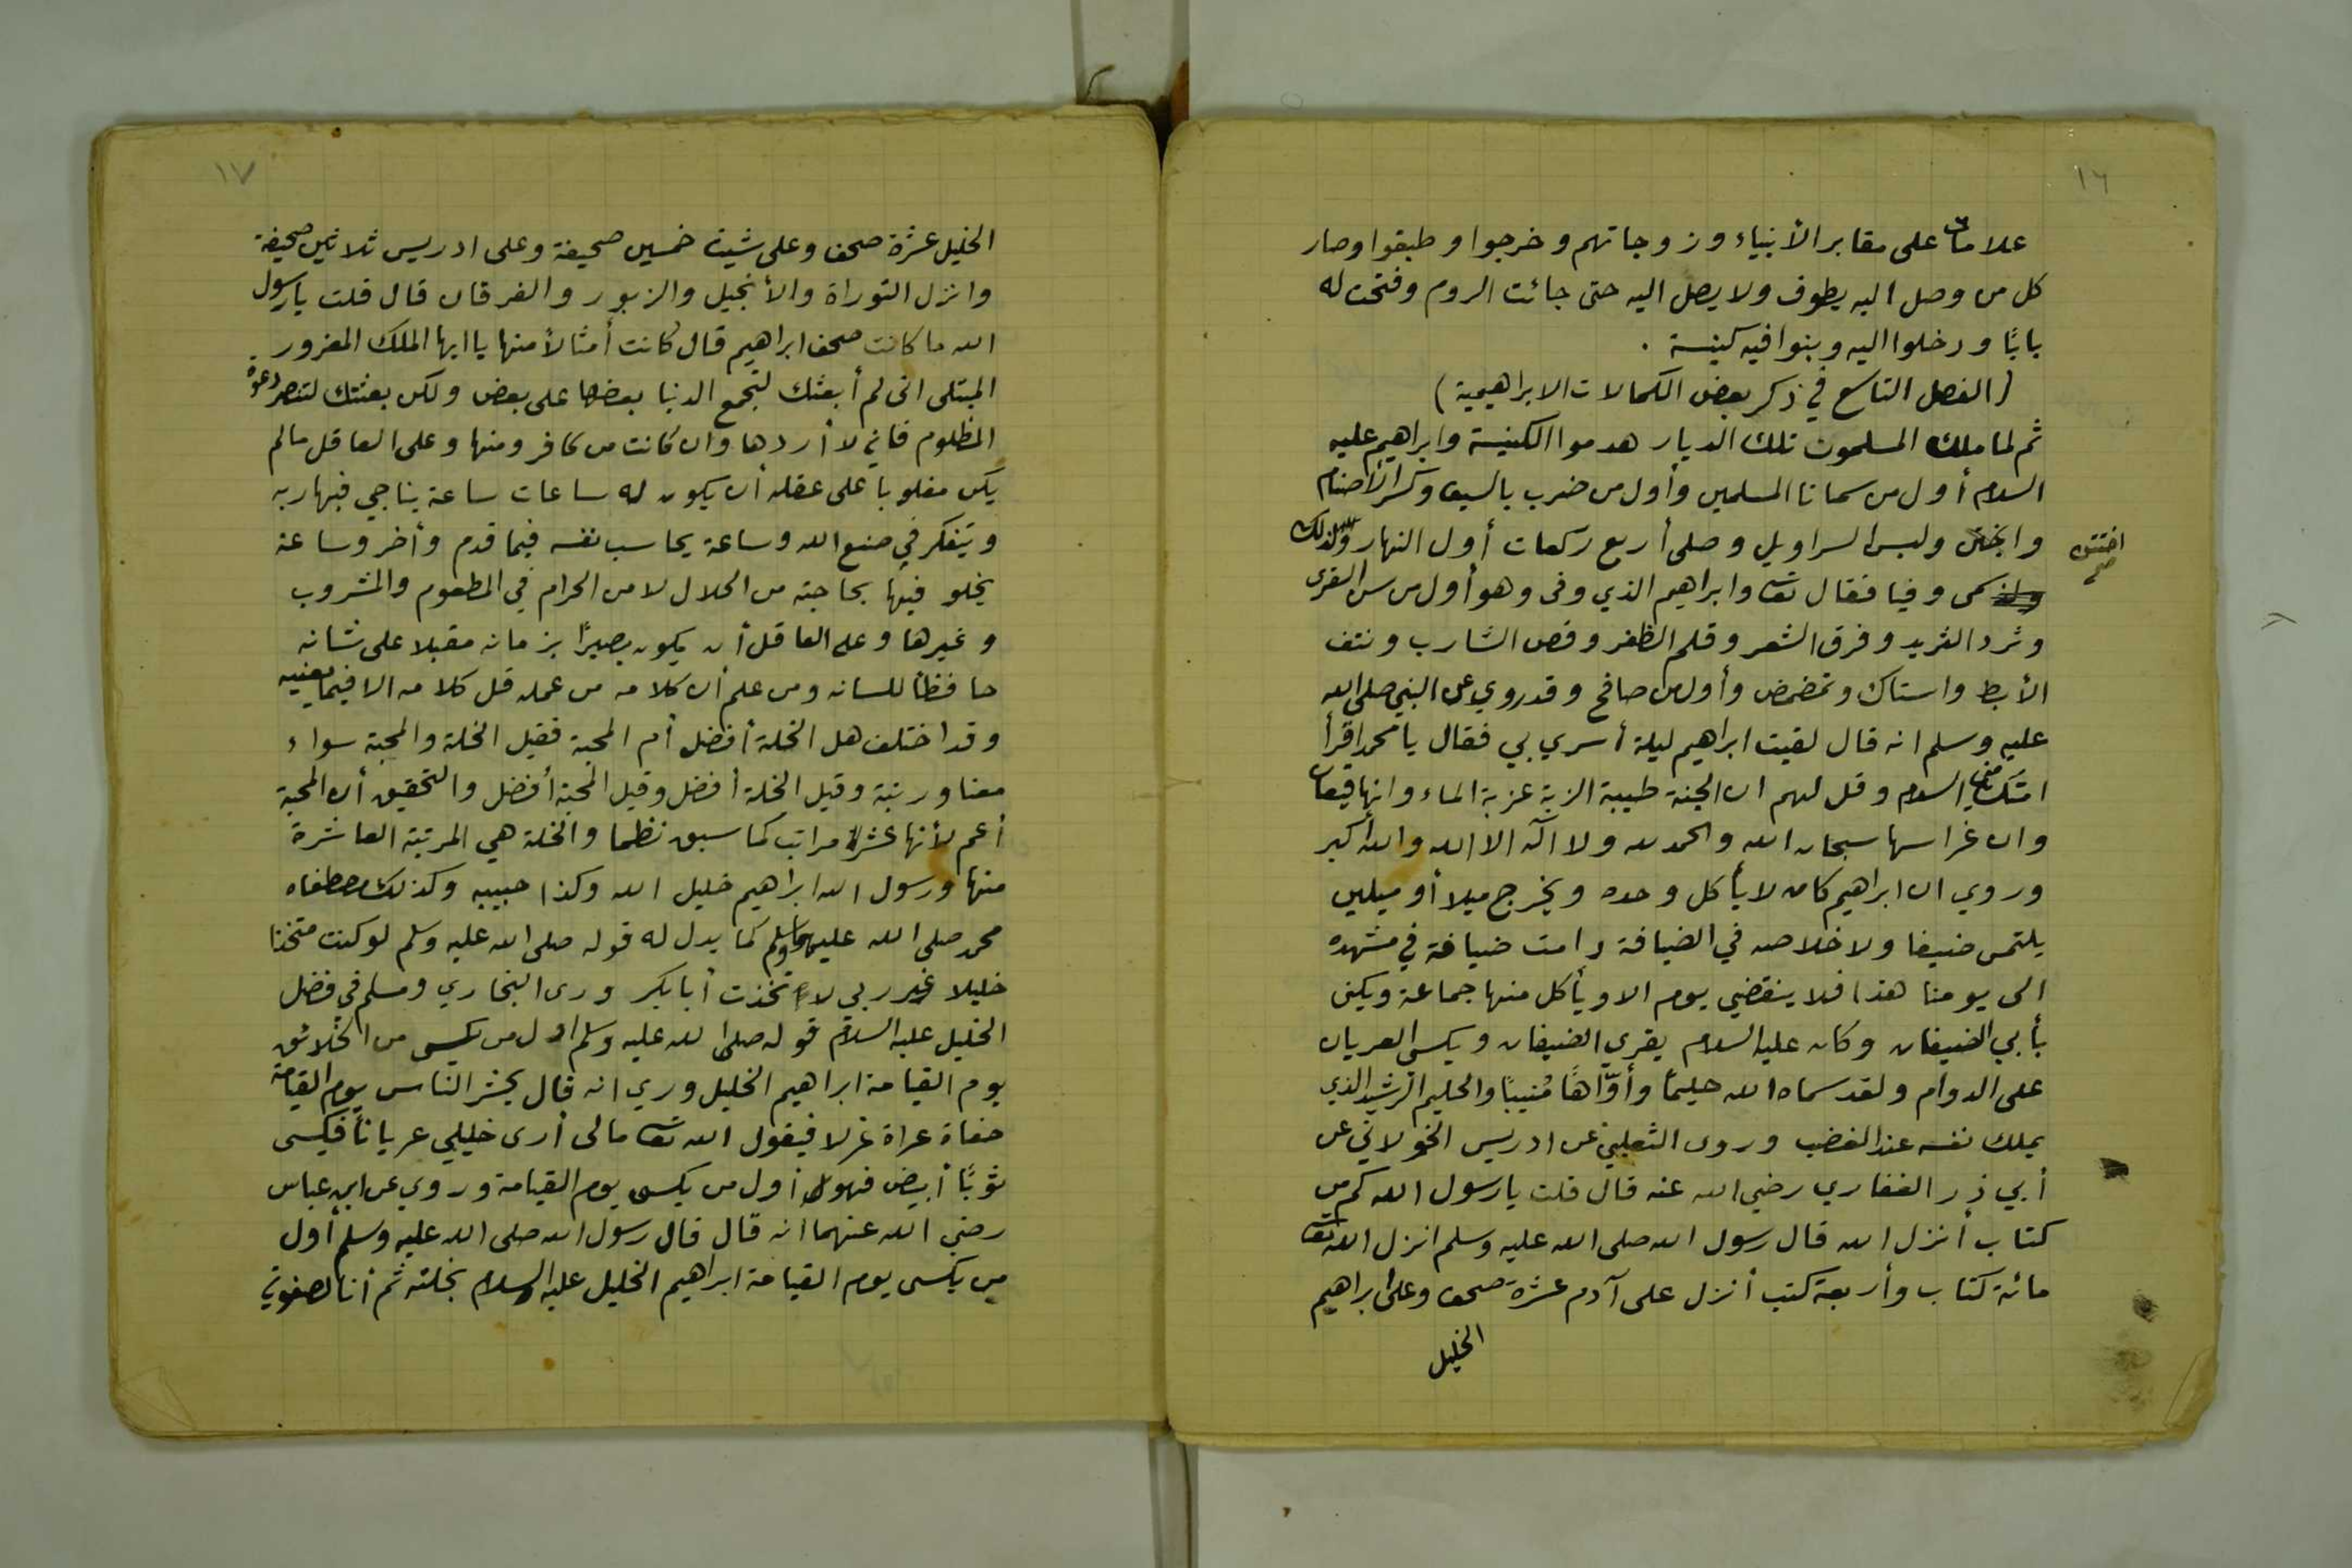 ١٦
علامات على مقابر الأنبياء وزوجاتهم وخرجوا وطبقوا وصار
كل من وصل اليه يطوف ولا يصل اليه حتى جائت الروم وفتحت له
بابًا ودخلوا اليه وبنوا فيه كنيسة .
(الفصل التاسع في ذكر بعض الكمالات الابراهيمية)
ثم لما ملك المسلمون تلك الديار هدموا الكنيسة وابراهيم عليه
السلام أول من سمانا المسلمين وأول من ضرب بالسيف وكسر الأصنام
واختتن ولبس السراويل وصلى أربع ركعات أول النهار ولذلك
اختتن صح
سمى وفيا فقال تعا وابراهيم الذي وفى وهو أول من سن القرى
وثرد الثريد وفرق الشعر وقلم الظفر وقص الشارب ونتف
الأبط واستاك وتمضمض وأول من صافح وقد روي عن النبي صلى الله
عليه وسلم انه قال لقيت ابراهيم ليلة أسري بي فقال يا محمد اقرأ
امتك مني السلام وقل لهم ان الجنة طيبة الربة عزبة الماء وانها قيعان
وان غراسها سبحان الله والحمد لله ولا اله الا الله والله أكبر
وروي ان ابراهيم كان لا يأكل وحده ويخرج ميلا أو ميلين
يلتمس ضيفا ولاخلاصه في الضيافة دامت ضيافة في مشهده
الى يومنا هذا فلا ينقضي يوم الا ويأكل منها جماعة ويكنى
بأبي الضيفان وكان عليه السلام يقري الضيفان ويكسي العريان
على الدوام ولقد سماه الله حليمًا وأوّاهًا مُنيبًا والحليم الرشيد الذي
يملك نفسه عند الغضب وروى الثعلبي عن ادريس الخولاني عن
أبي ذر الغفاري رضي الله عنه قال قلت يا رسول الله كم من
كتاب أنزل الله قال رسول الله صلى الله عليه وسلم انزل الله تعا
مائة كتاب وأربعة كتب أنزل على آدم عشرة صحف وعلى ابراهيم
الخليل
١٧
الخليل عشرة صحف وعلى شيث خمسين صحيفة وعلى ادريس ثلاثين صحيفة
وانزل التوراة والأنجيل والزبور والفرقان قال قلت يا رسول
الله ما كانت صحف ابراهيم قال كانت أمثالا منها يا ايها الملك المغرور
المبتلى انى لم أبعثك لتجمع الدنيا بعضها على بعض ولكن بعثتك لتنصر دعوة
المظلوم فاني لا أردها وان كانت من كافر ومنها وعلى العاقل مالم
يكن مغلوبا على عقله أن يكون له ساعات ساعة يناجي فيها ربه
ويتفكر في صنع الله وساعة يحاسب نفسه فيما قدم وأخر وساعة
يخلو فيها بحاجته من الحلال لا من الحرام في المطعوم والمشروب
وغيرها وعلى العاقل أن يكون بصيرًا بزمانه مقبلا على شانه
حافظا للسانه ومن علم أن كلامه من عمله قل كلامه الا فيما يعنيه
وقد اختلف هل الخلة أفضل أم المحبة فقيل الخلة والمحبة سواء
معنا ورتبة وقيل الخلة أفضل وقيل المحبة أفضل والتحقيق أن المحبة
أعم لأنها عشرة مراتب كما سبق نظما والخلة هي المرتبة العاشرة
منها ورسول الله ابراهيم خليل الله وكذا حبيبه وكذلك مصطفاه
محمد صلى الله عليهما وسلم كما يدل له قوله صلى الله عليه وسلم لو كنت متخذا
خليلا غير ربي لاتخذت أبا بكر ورى البخاري ومسلم في فضل
الخليل عليه السلام قوله صلى الله عليه وسلم اول من يكسى من الخلائق
يوم القيامة ابراهيم الخليل وري انه قال يحشر الناس يوم القيامة
حفاة عراة غرلا فيقول الله تعا مالى أرى خليلي عريانًا فيكسى
ثوبًا أبيض فهو أول من يكسى يوم القيامة وروي عن ابن عباس
رضي الله عنهما انه قال قال رسول الله صلى الله عليه وسلم أول
من يكسى يوم القيامة ابراهيم الخليل عليه السلام بخلته ثم أنا لصفوتي